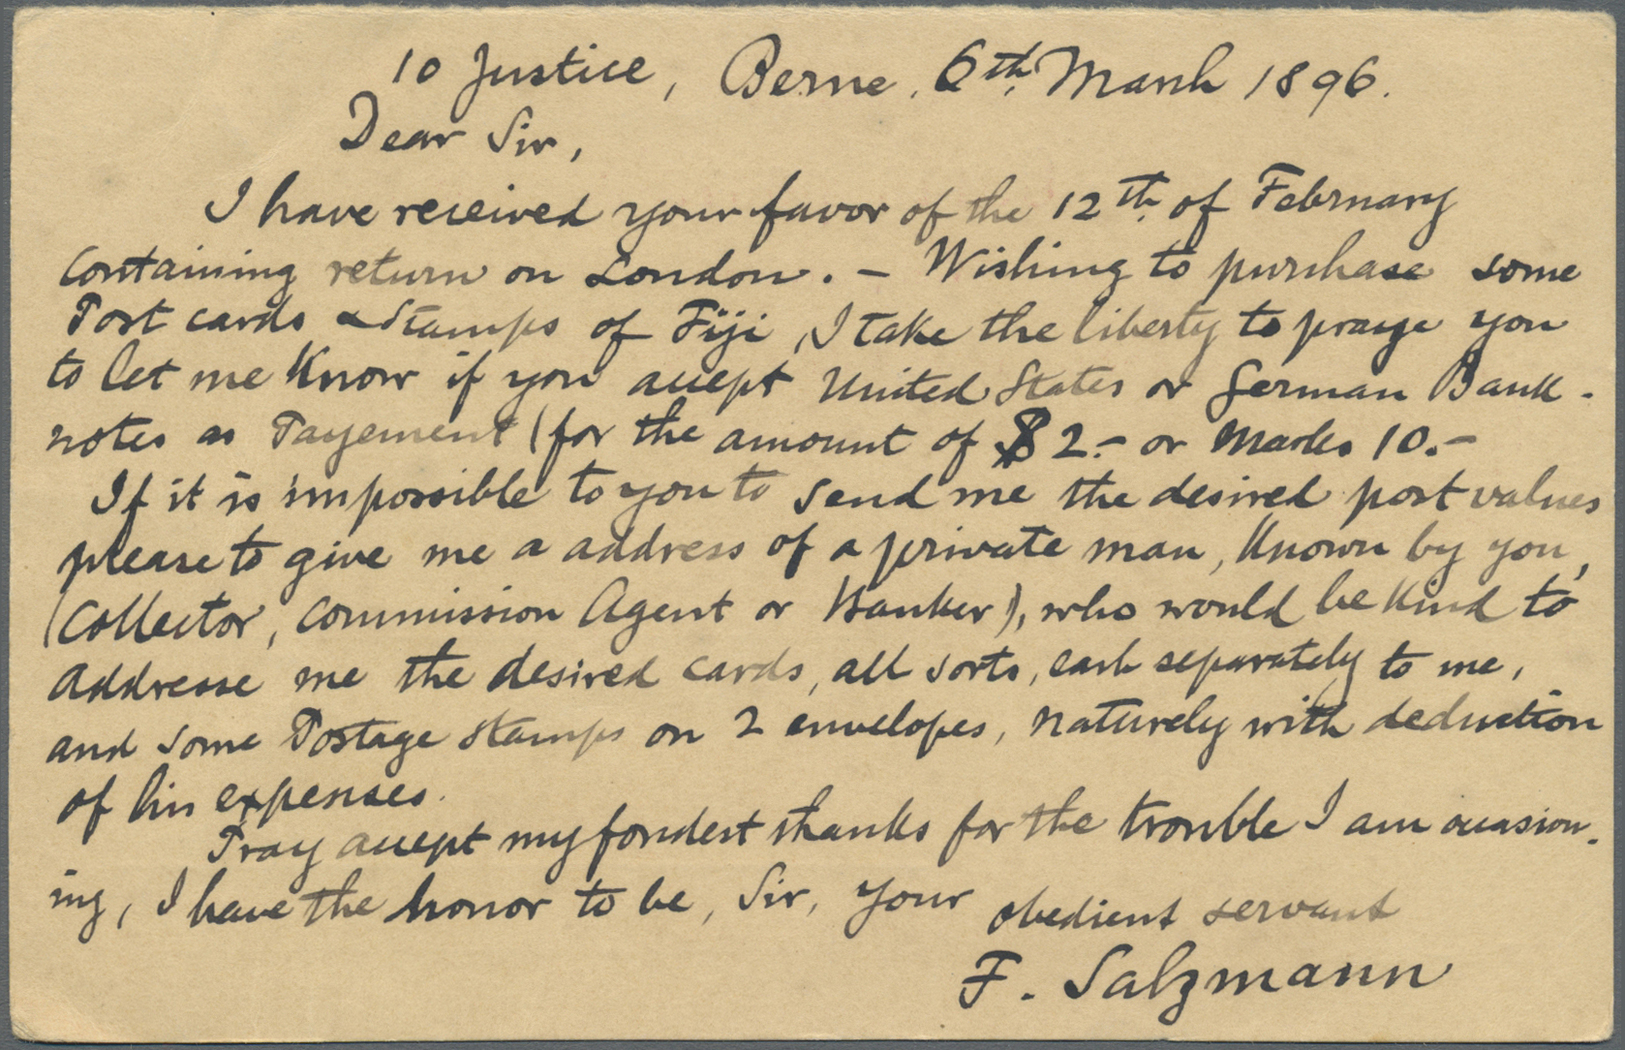 10 Justice, Berne. 6th March 1896.
Dear Sir,
I have received your favor of the 12th of February
containing return on London. – Wishing to purchase some
Post cards & Stamps of Fiji, I take the liberty to praye you
to let me know if you accept United States or German Bank-
notes as Payement (for the amount of $ 2.– or Marks 10.–
If it is impossible to you to send me the desired post values
please to give me a address of a private man, known by you,
(Collector, Commission Agent or Banker), who would be kind to
addresse me the desired cards, all sorts, each separately to me,
and some Postage stamps on 2 envelopes, naturely with deduction
of his expenses.
Pray accept my fondest thanks for the trouble I am occasion-
ing, I have the honor to be, Sir, your obedient servant
F. Salzmann